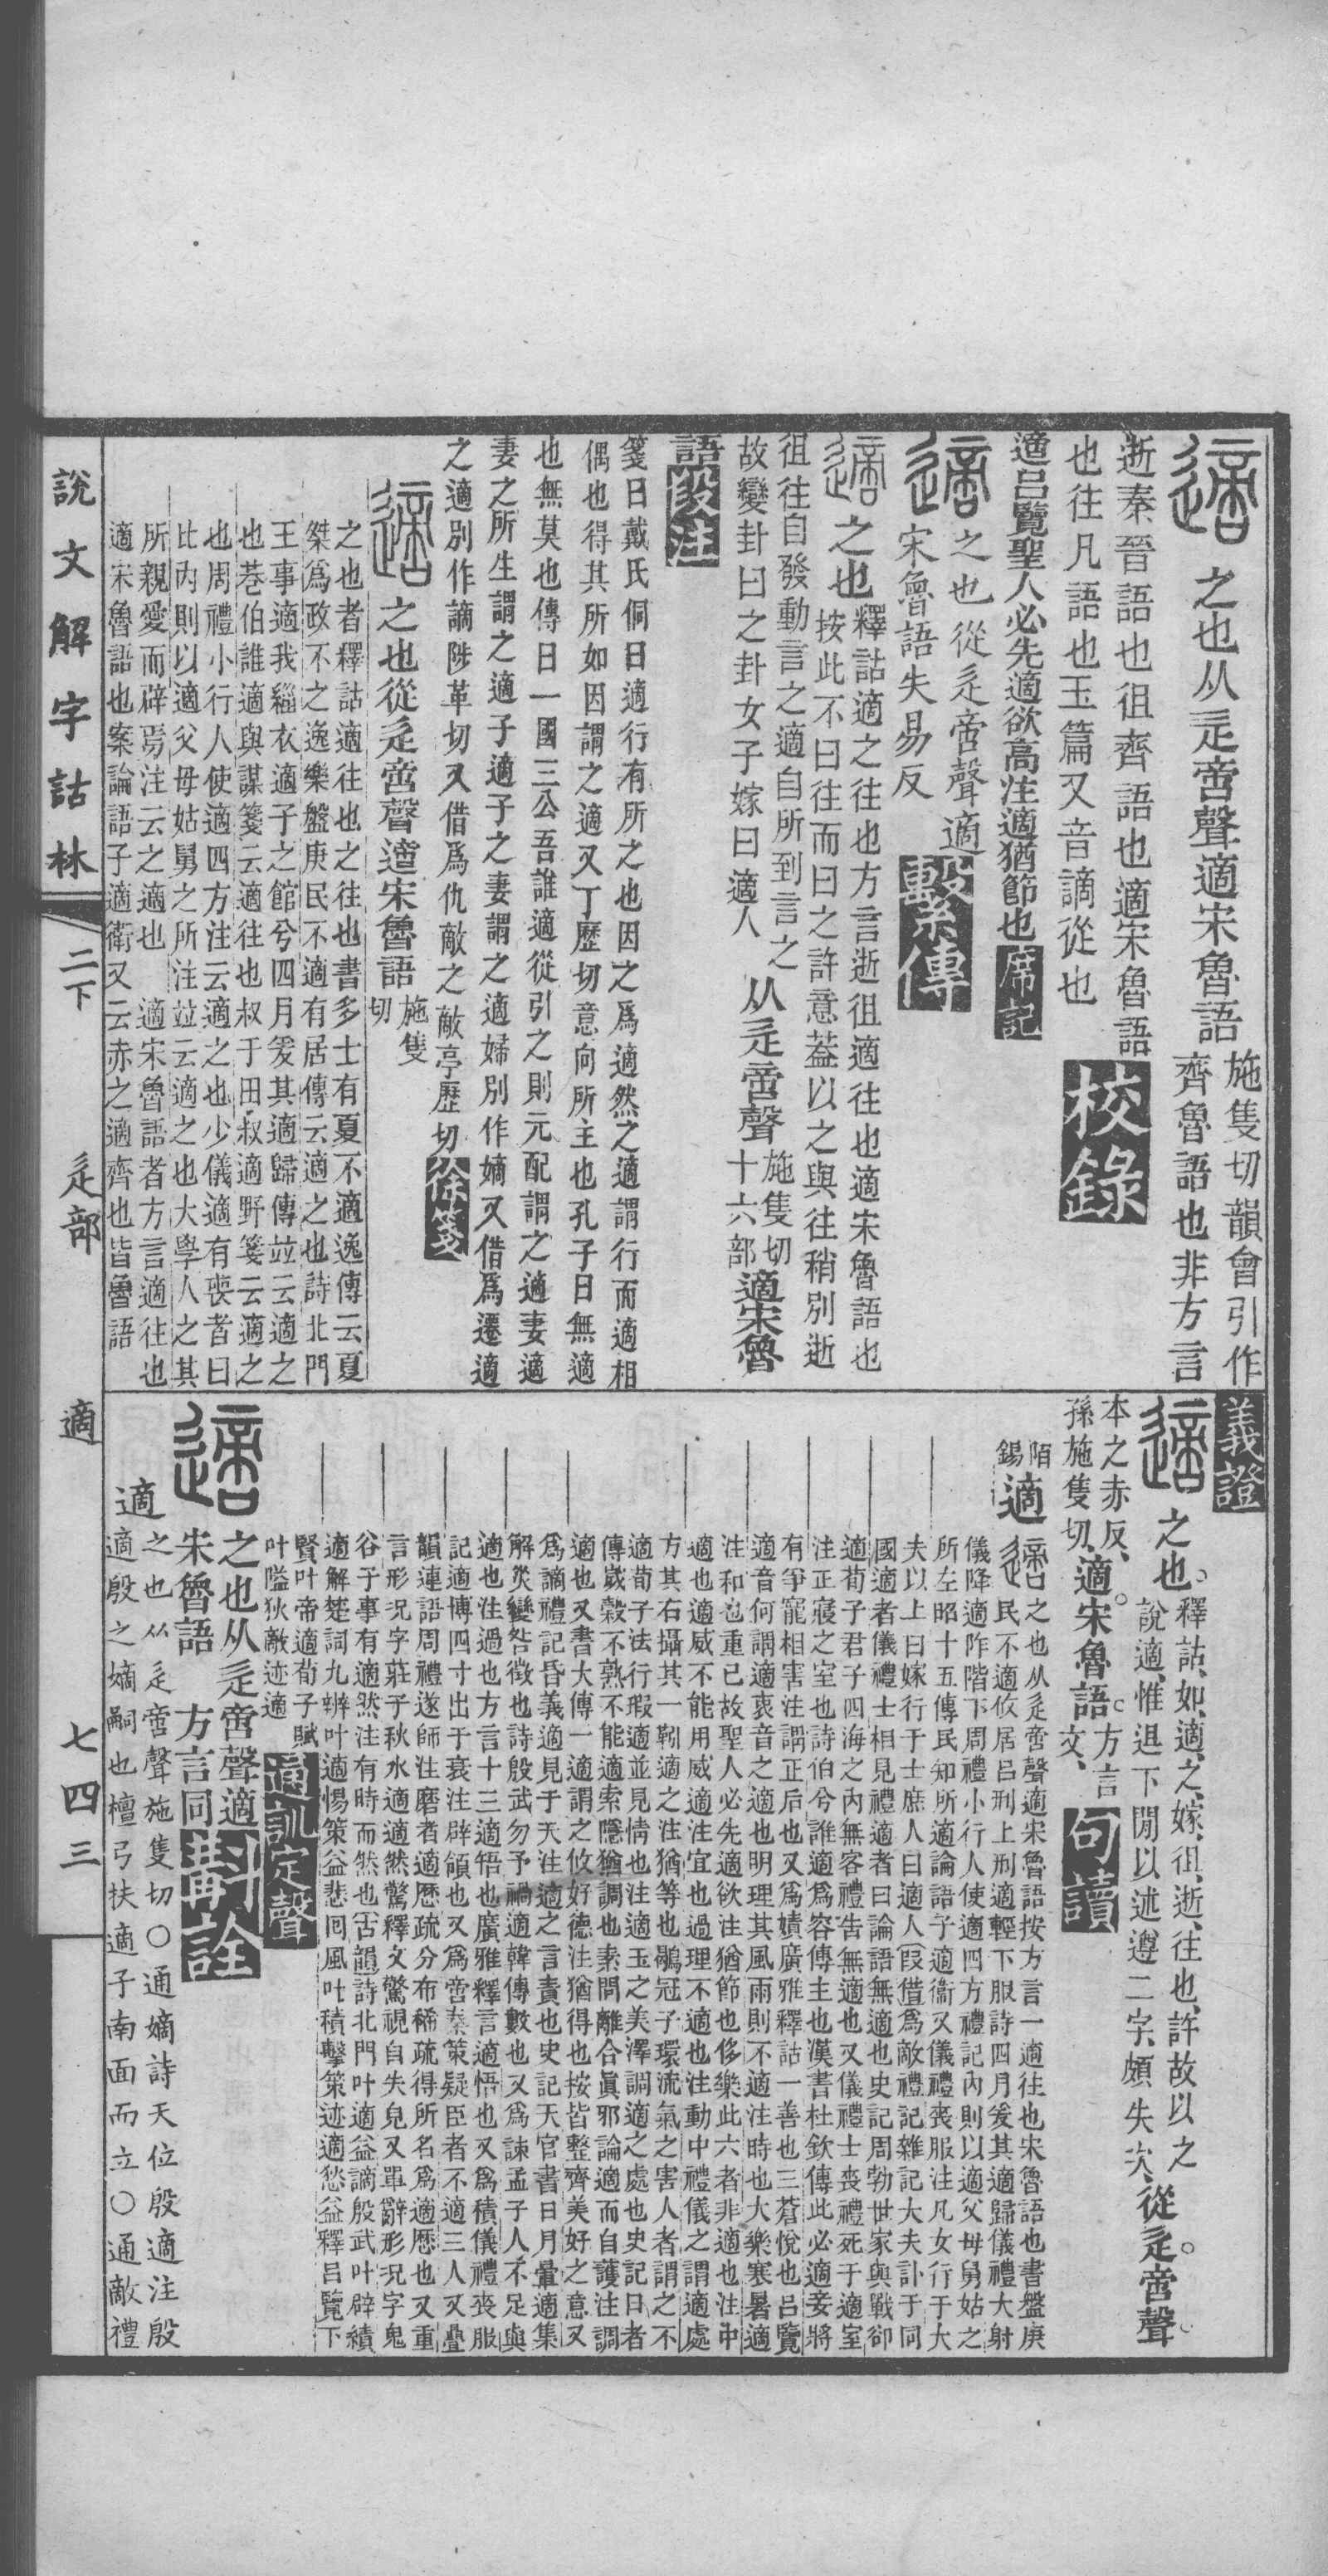 之也从辵啻聲適宋魯語
施隻切韻會引作
齊魯語也非方言
逝秦晉語也徂齊語也適宋魯語
也往凡語也玉篇又音謫從也
校錄
適呂覽聖人必先適欲高注適猶節也
席記
之也從辵啻聲適
宋魯語失易反
繫傳
之也
釋詁適之往也方言逝徂適往也適宋魯語也
按此不曰往而曰之許意葢以之與往稍別逝
徂往自發動言之適自所到言之
故變卦曰之卦女子嫁曰適人
从辵啻聲
施隻切
十六部
適宋魯
語
段注
箋曰戴氏侗曰適行有所之也因之爲適然之適謂行而適相
偶也得其所如因謂之適又丁歷切意向所主也孔子曰無適
也無莫也傳曰一國三公吾誰適從引之則元配謂之適妻適
妻之所生謂之適子適子之妻謂之適婦別作嫡又借爲遷適
之適別作謫陟革切又借爲仇敵之敵亭歷切
徐箋
之也從辵啻聲適宋魯語
施隻
切
之也者釋詁適往也之往也書多士有夏不適逸傳云夏
桀爲政不之逸樂盤庚民不適有居傳云適之也詩北門
王事適我緇衣適子之館兮四月爰其適歸傳竝云適之
也巷伯誰適與謀箋云適往也叔于田叔適野箋云適之
也周禮小行人使適四方注云適之也少儀適有喪者曰
比內則以適父母姑舅之所注竝云適之也大學人之其
所親愛而辟焉注云之適也　適宋魯語者方言適往也
適宋魯語也案論語子適衛又云赤之適齊也皆魯語
義證
之也
釋詁如適之嫁徂逝往也許故以之
說適惟退下閒以述遵二字頗失次
從辵啻聲
本之赤反
孫施隻切
適宋魯語
方言
文
句讀
陌
錫
適
之也从辵啻聲適宋魯語按方言一適往也宋魯語也書盤庚
民不適攸居呂刑上刑適輕下服詩四月爰其適歸儀禮大射
儀降適阼階下周禮小行人使適四方禮記內則以適父母舅姑之
所左昭十五傳民知所適論語子適衞又儀禮喪服注凡女行于大
夫以上曰嫁行于士庶人曰適人叚借爲敵禮記雜記大夫訃于同
國適者儀禮士相見禮適者曰論語無適也史記周勃世家與戰卻
適荀子君子四海之內無客禮告無適也又儀禮士喪禮死于適室
注正寢之室也詩伯兮誰適爲容傳主也漢書杜欽傳此必適妾將
有爭寵相害注謂正后也又爲嫧廣雅釋詁一善也三蒼悅也呂覽
適音何謂適衷音之適也明理其風雨則不適注時也大樂寒暑適
注和也重已故聖人必先適欲注猶節也侈樂此六者非適也注中
適也適威不能用威適注宜也過理不適也注動中禮儀之謂適處
方其右攝其一靷適之注猶等也鶡冠子環流氣之害人者謂之不
適荀子法行瑕適並見情也注適玉之美澤調適之處也史記日者
傳歲穀不熟不能適索隱猶調也素問離合眞邪論適而自護注調
適也又書大傳一適謂之攸好德注猶得也按皆整齊美好之意又
爲謫禮記昏義適見于天注適之言責也史記天官書日月暈適集
解災變咎徵也詩殷武勿予禍適韓傳數也又爲諫孟子人不足與
適也注過也方言十三適牾也廣雅釋言適悟也又爲積儀禮喪服
記適博四寸出于衰注辟領也又爲啻秦策疑臣者不適三人又疊
韻連語周禮遂師注磨者適歷疏分布稀疏得所名爲適歷也又重
言形況字莊子秋水適適然驚釋文驚視自失皃又單辭形況字鬼
谷子事有適然注有時而然也古韻詩北門叶適益謫殷武叶辟績
適解楚詞九辨叶適惕策益悲回風叶積擊策迹適愁益釋呂覽下
賢叶帝適荀子賦
叶隘狄敵迹適
通訓定聲
之也从辵啻聲適
宋魯語
方言同
斠詮
適
之也从辵啻聲施隻切○通嫡詩天位殷適注殷
適殷之嫡嗣也檀弓扶適子南面而立○通敵禮
說文解字詁林
二下
辵部
適
七四三